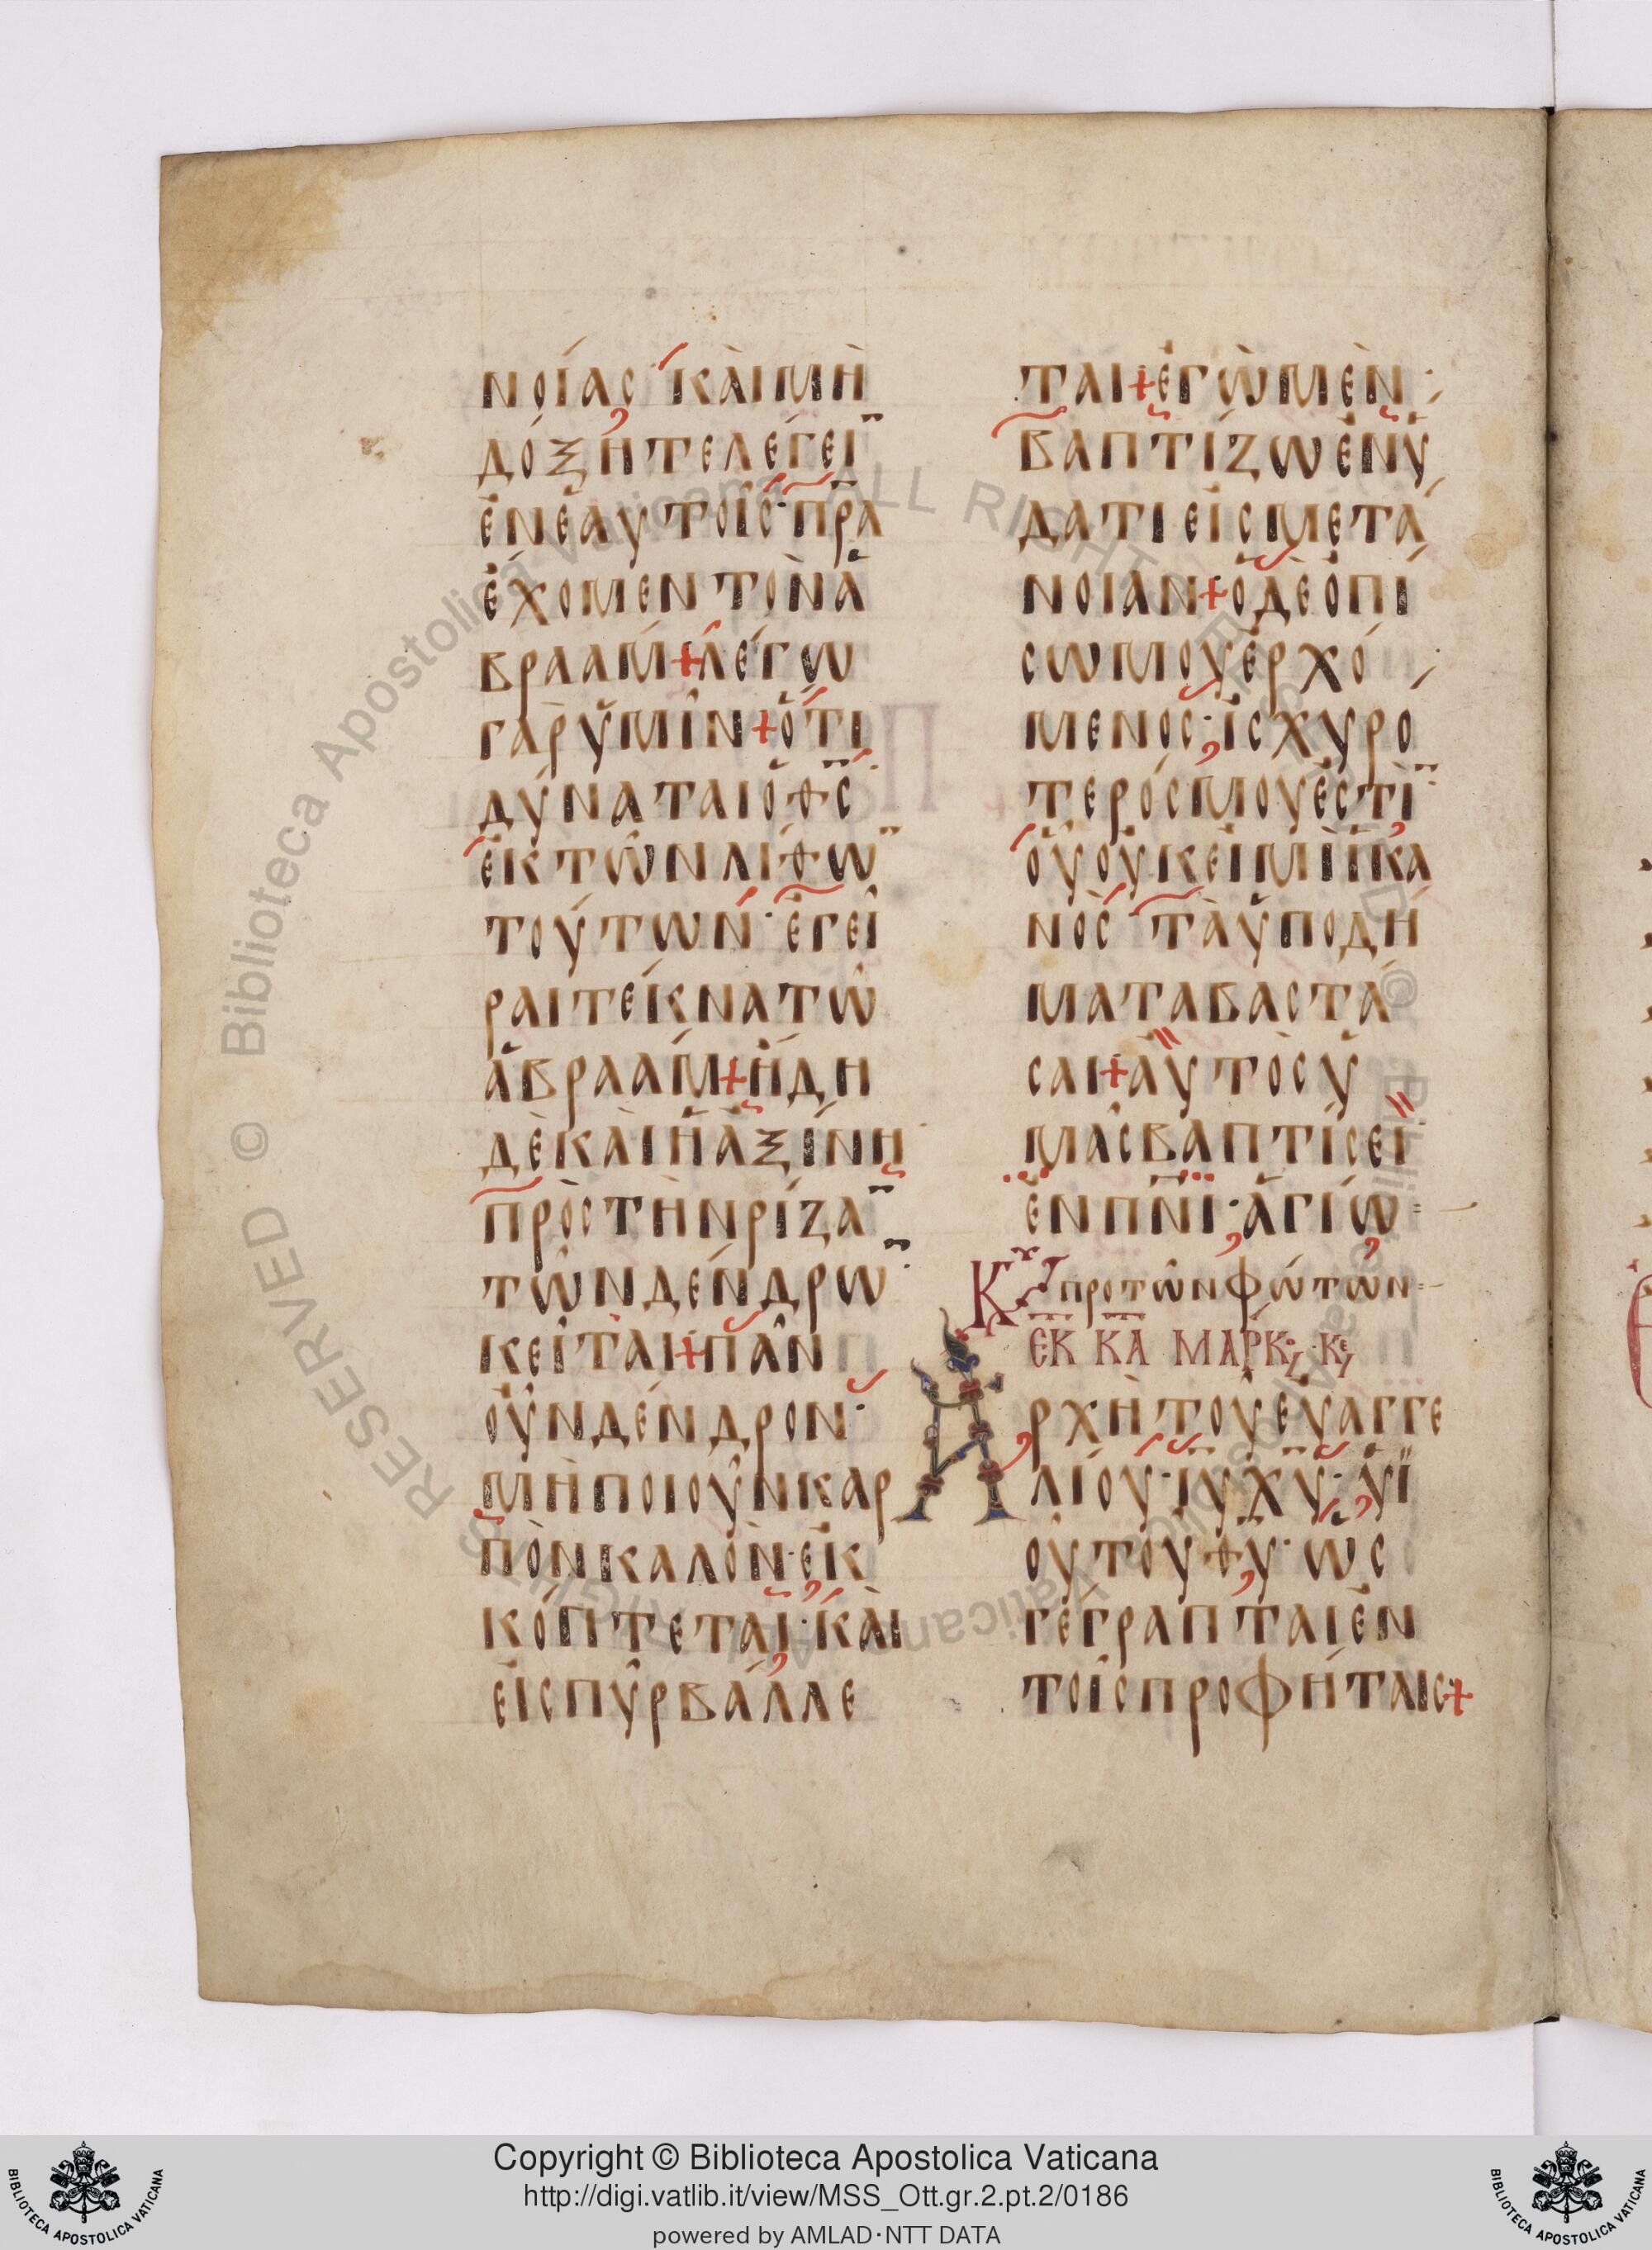 νοίας· καὶ μὴ
δόξητε λέγει̅
ἐν ἑαυτοῖς· π̅ρ̅α
ἔχομεν τὸν Ἀ
βραάμ + λέγω
γὰρ ὑμῖν + ὅτι
δύναται ὁ θ̅ς̅
ἐκ τῶν λίθω̅
τούτων· ἐγεῖ
ραι τέκνα τῶ
Ἀβραάμ + ἤδη
δὲ καὶ ἡ ἀξίνη
πρὸς τὴν ρίζα̅
τῶν δένδρω̅
κεῖται + πᾶν
οὖν δένδρον·
μὴ ποιοῦν καρ
πὸν καλὸν· ἐκ
κόπτεται· καὶ
εἰς πῦρ βάλλε
ται + ἐγὼ μὲν
βαπτίζω ἐν ὕ
δατι εἰς μετά
νοιαν + ὁ δὲ ὀπί
σω μου ἐρχό
μενος· ἰσχυρό
τερός μου ἐστὶ̅·
οὗ οὐκ εἰμὶ ἱκα
νὸς· τὰ ὑποδή
ματα βαστά
σαι + αὐτὸς ὑ
μᾶς βαπτίσει
ἐν π̅ν̅ι̅· ἁγίω
Κυ προ τῶν φώτων
ΕΚ ΚΑ ΜΑΡΚ. ΚΕ
Ἀρχὴ τοῦ εὐαγγε
λίου· ι̅υ̅ χ̅υ̅· ὑϊ
οῦ τοῦ θ̅υ̅· ὡς
γέγραπται ἐν
τοῖς προφήταις +
BIBLIOTECA APOSTOLICA VATICANA
Copyright © Biblioteca Apostolica Vaticana
http://digi.vatlib.it/view/MSS_Ott.gr.2.pt.2/0186
powered by AMLAD·NTT DATA
BIBLIOTECA APOSTOLICA VATICANA
© Biblioteca Apostolica Vaticana ALL RIGHTS RESERVED